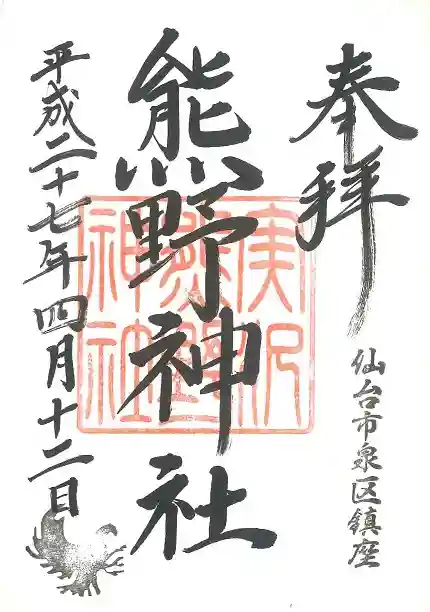 奉拝
仙台市泉区鎮座
熊野神社
平成二十七年四月十二日
神社